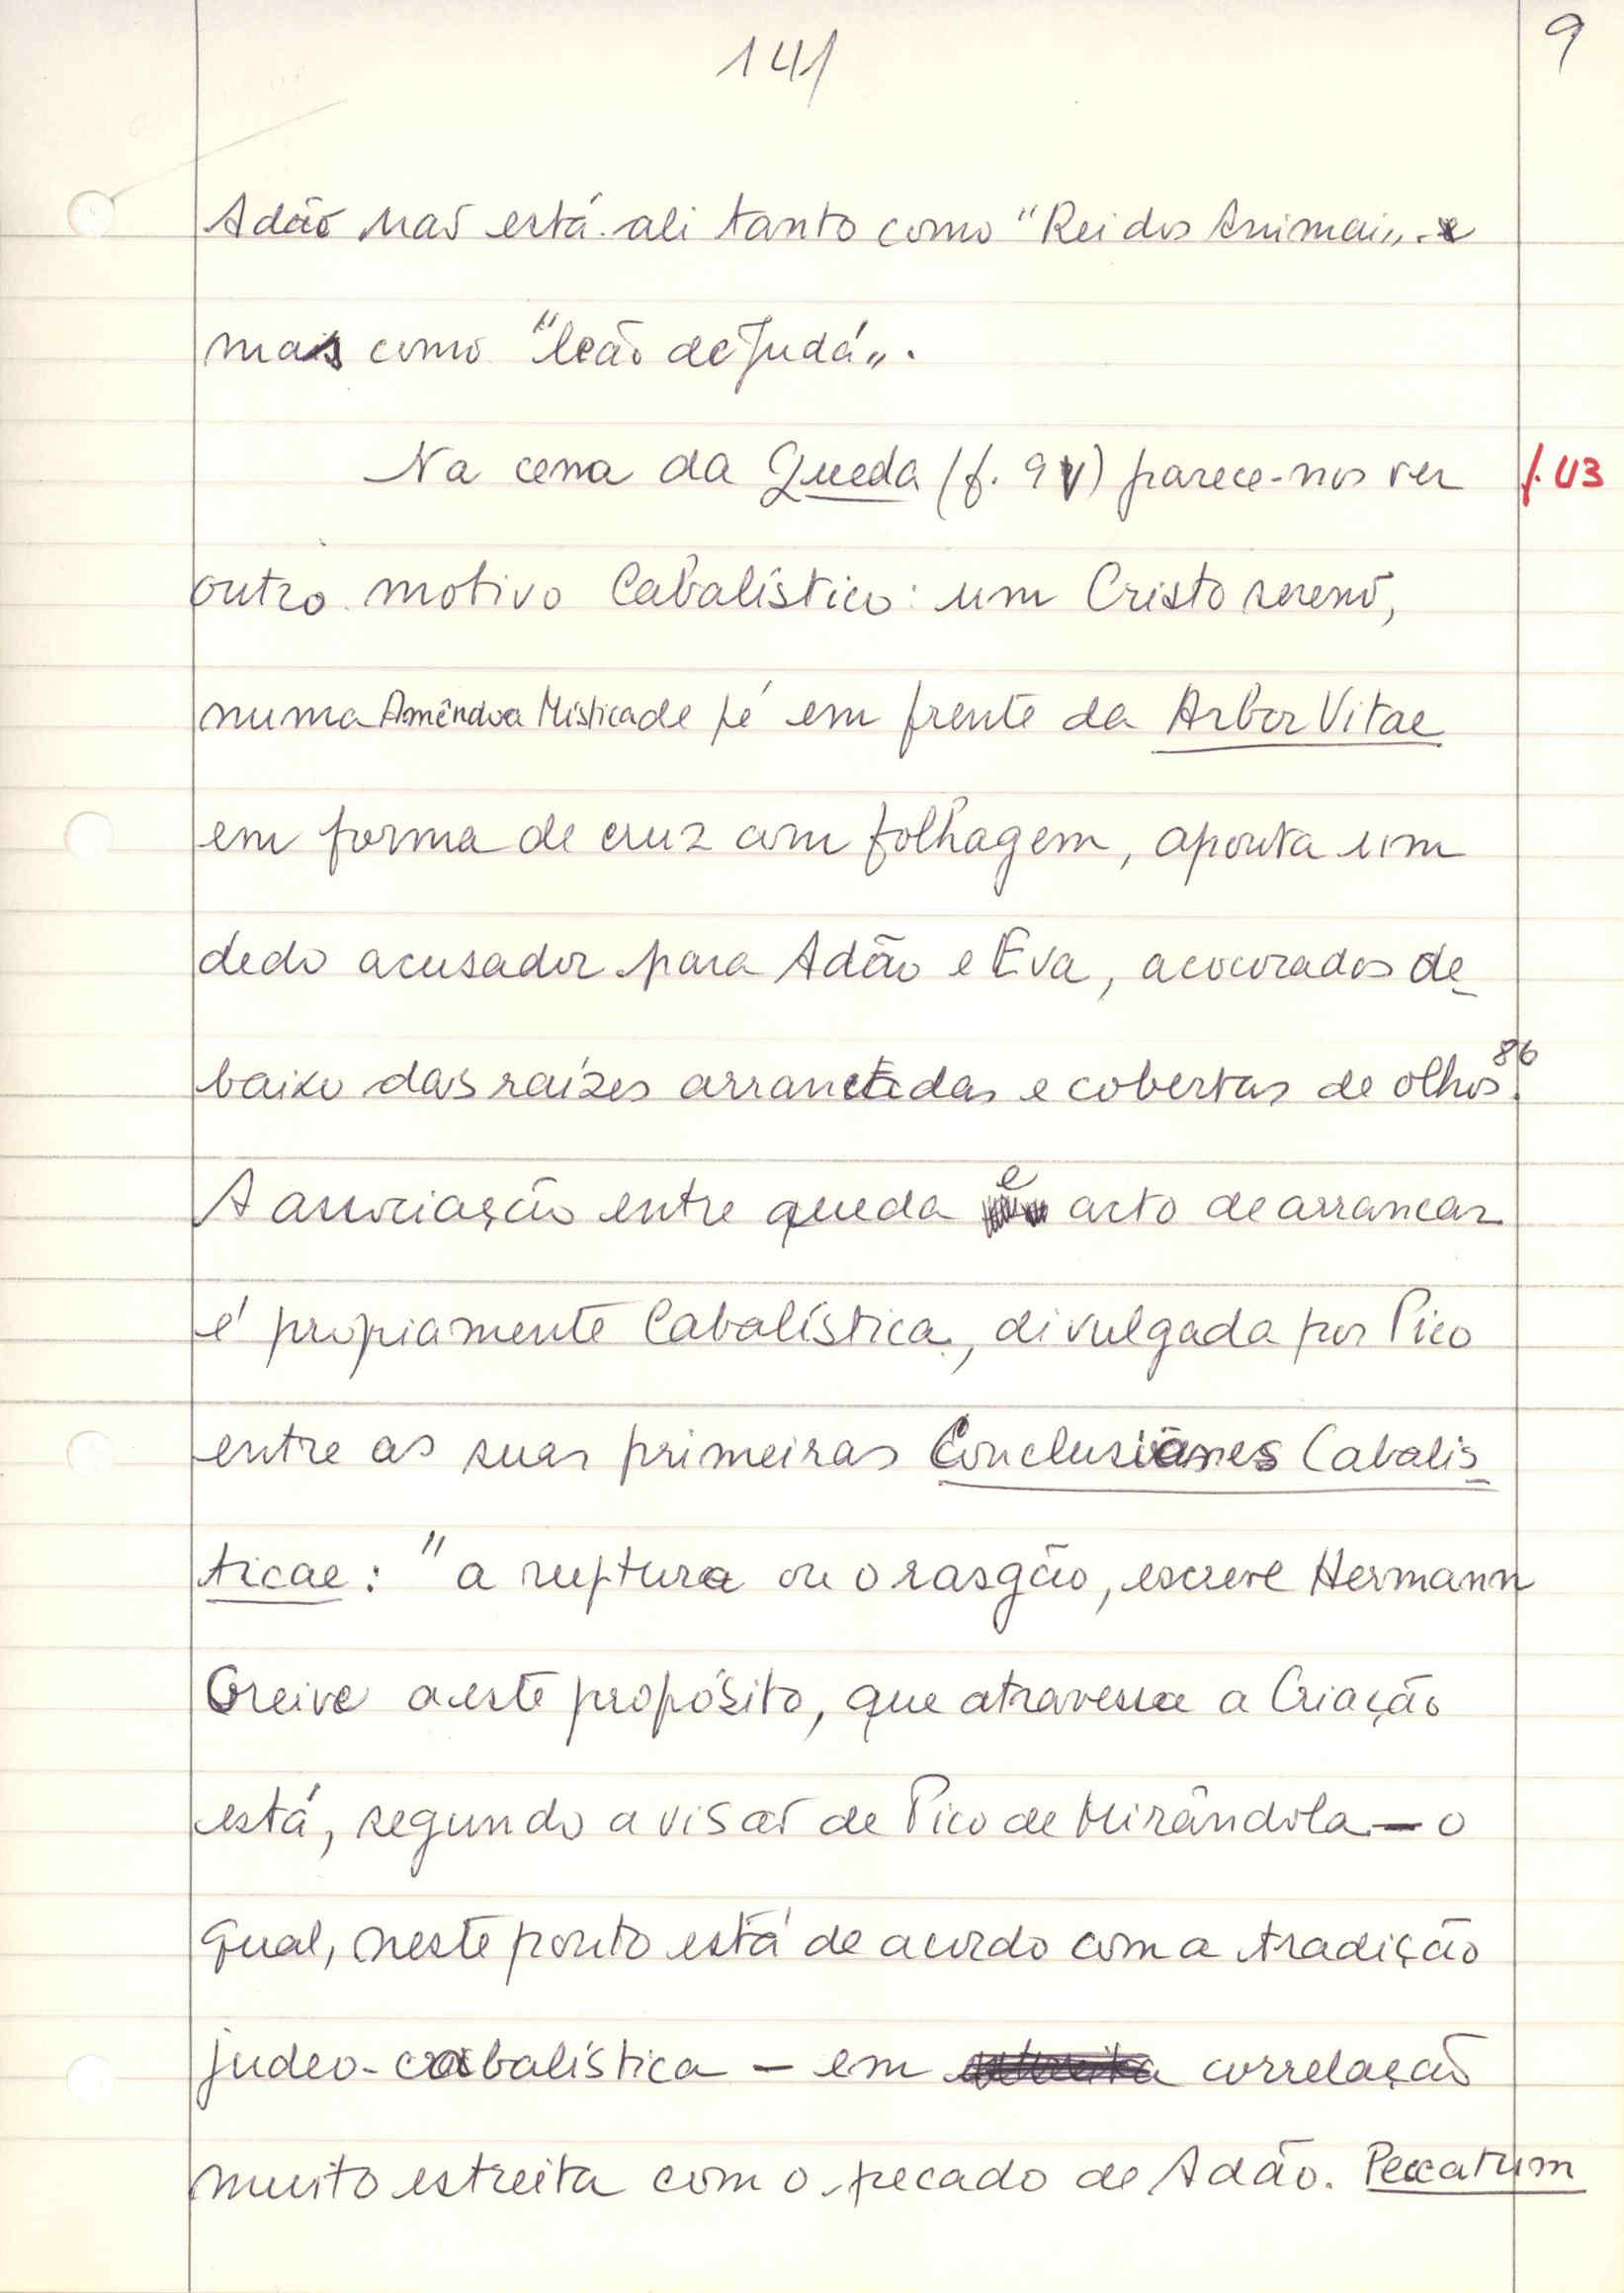 141
9
Adão não está ali tanto como "Rei dos Animais"
mas como "leão de Judá".
Na cena da Queda (f. 9V) parece-nos ver
f. U3
outro motivo Cabalístico: um Cristo sereno,
numa Amêndoa Mística de pé em frente da Arbor Vitae
em forma de cruz com folhagem, aponta um
dedo acusador para Adão e Eva, acocorados de-
baixo das raízes arrancadas e cobertas de olhos.86
A associação entre queda e acto de arrancar
é propiamente Cabalística, divulgada por Pico
entre as suas primeiras Conclusiones Cabalis-
ticae: "a ruptura ou o rasgão, escreve Hermann
Greive a este propósito, que atravessa a Criação
está, segundo a visão de Pico de Mirândola — o
qual, neste ponto está de acordo com a tradição
judeo-cabalística — em correlação
muito estreita com o pecado de Adão. Peccatum